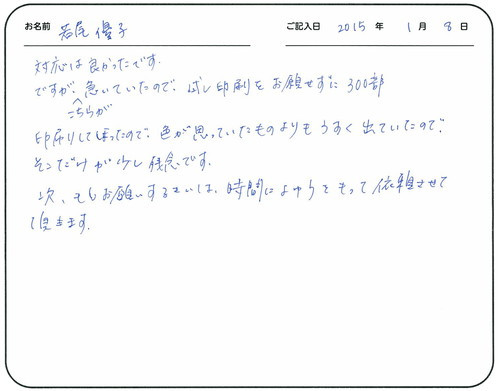 お名前 若尾 優子 ご記入日 2015 年 1 月 8 日
対応は良かったです。
ですが、急いていたので、試し印刷をお願せずに 300部
こちらが
印刷りして頂ったので、色が思っていたものよりもうすく出ていたので、
そこだけが少し残念です。
次、もしお願いするといは、時間によゆうをもって依頼させて
頂きます。